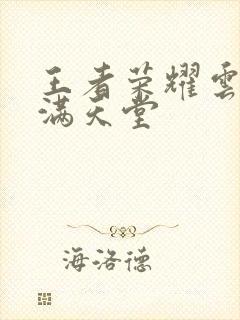 王者荣耀雲
满天堂
海洛德